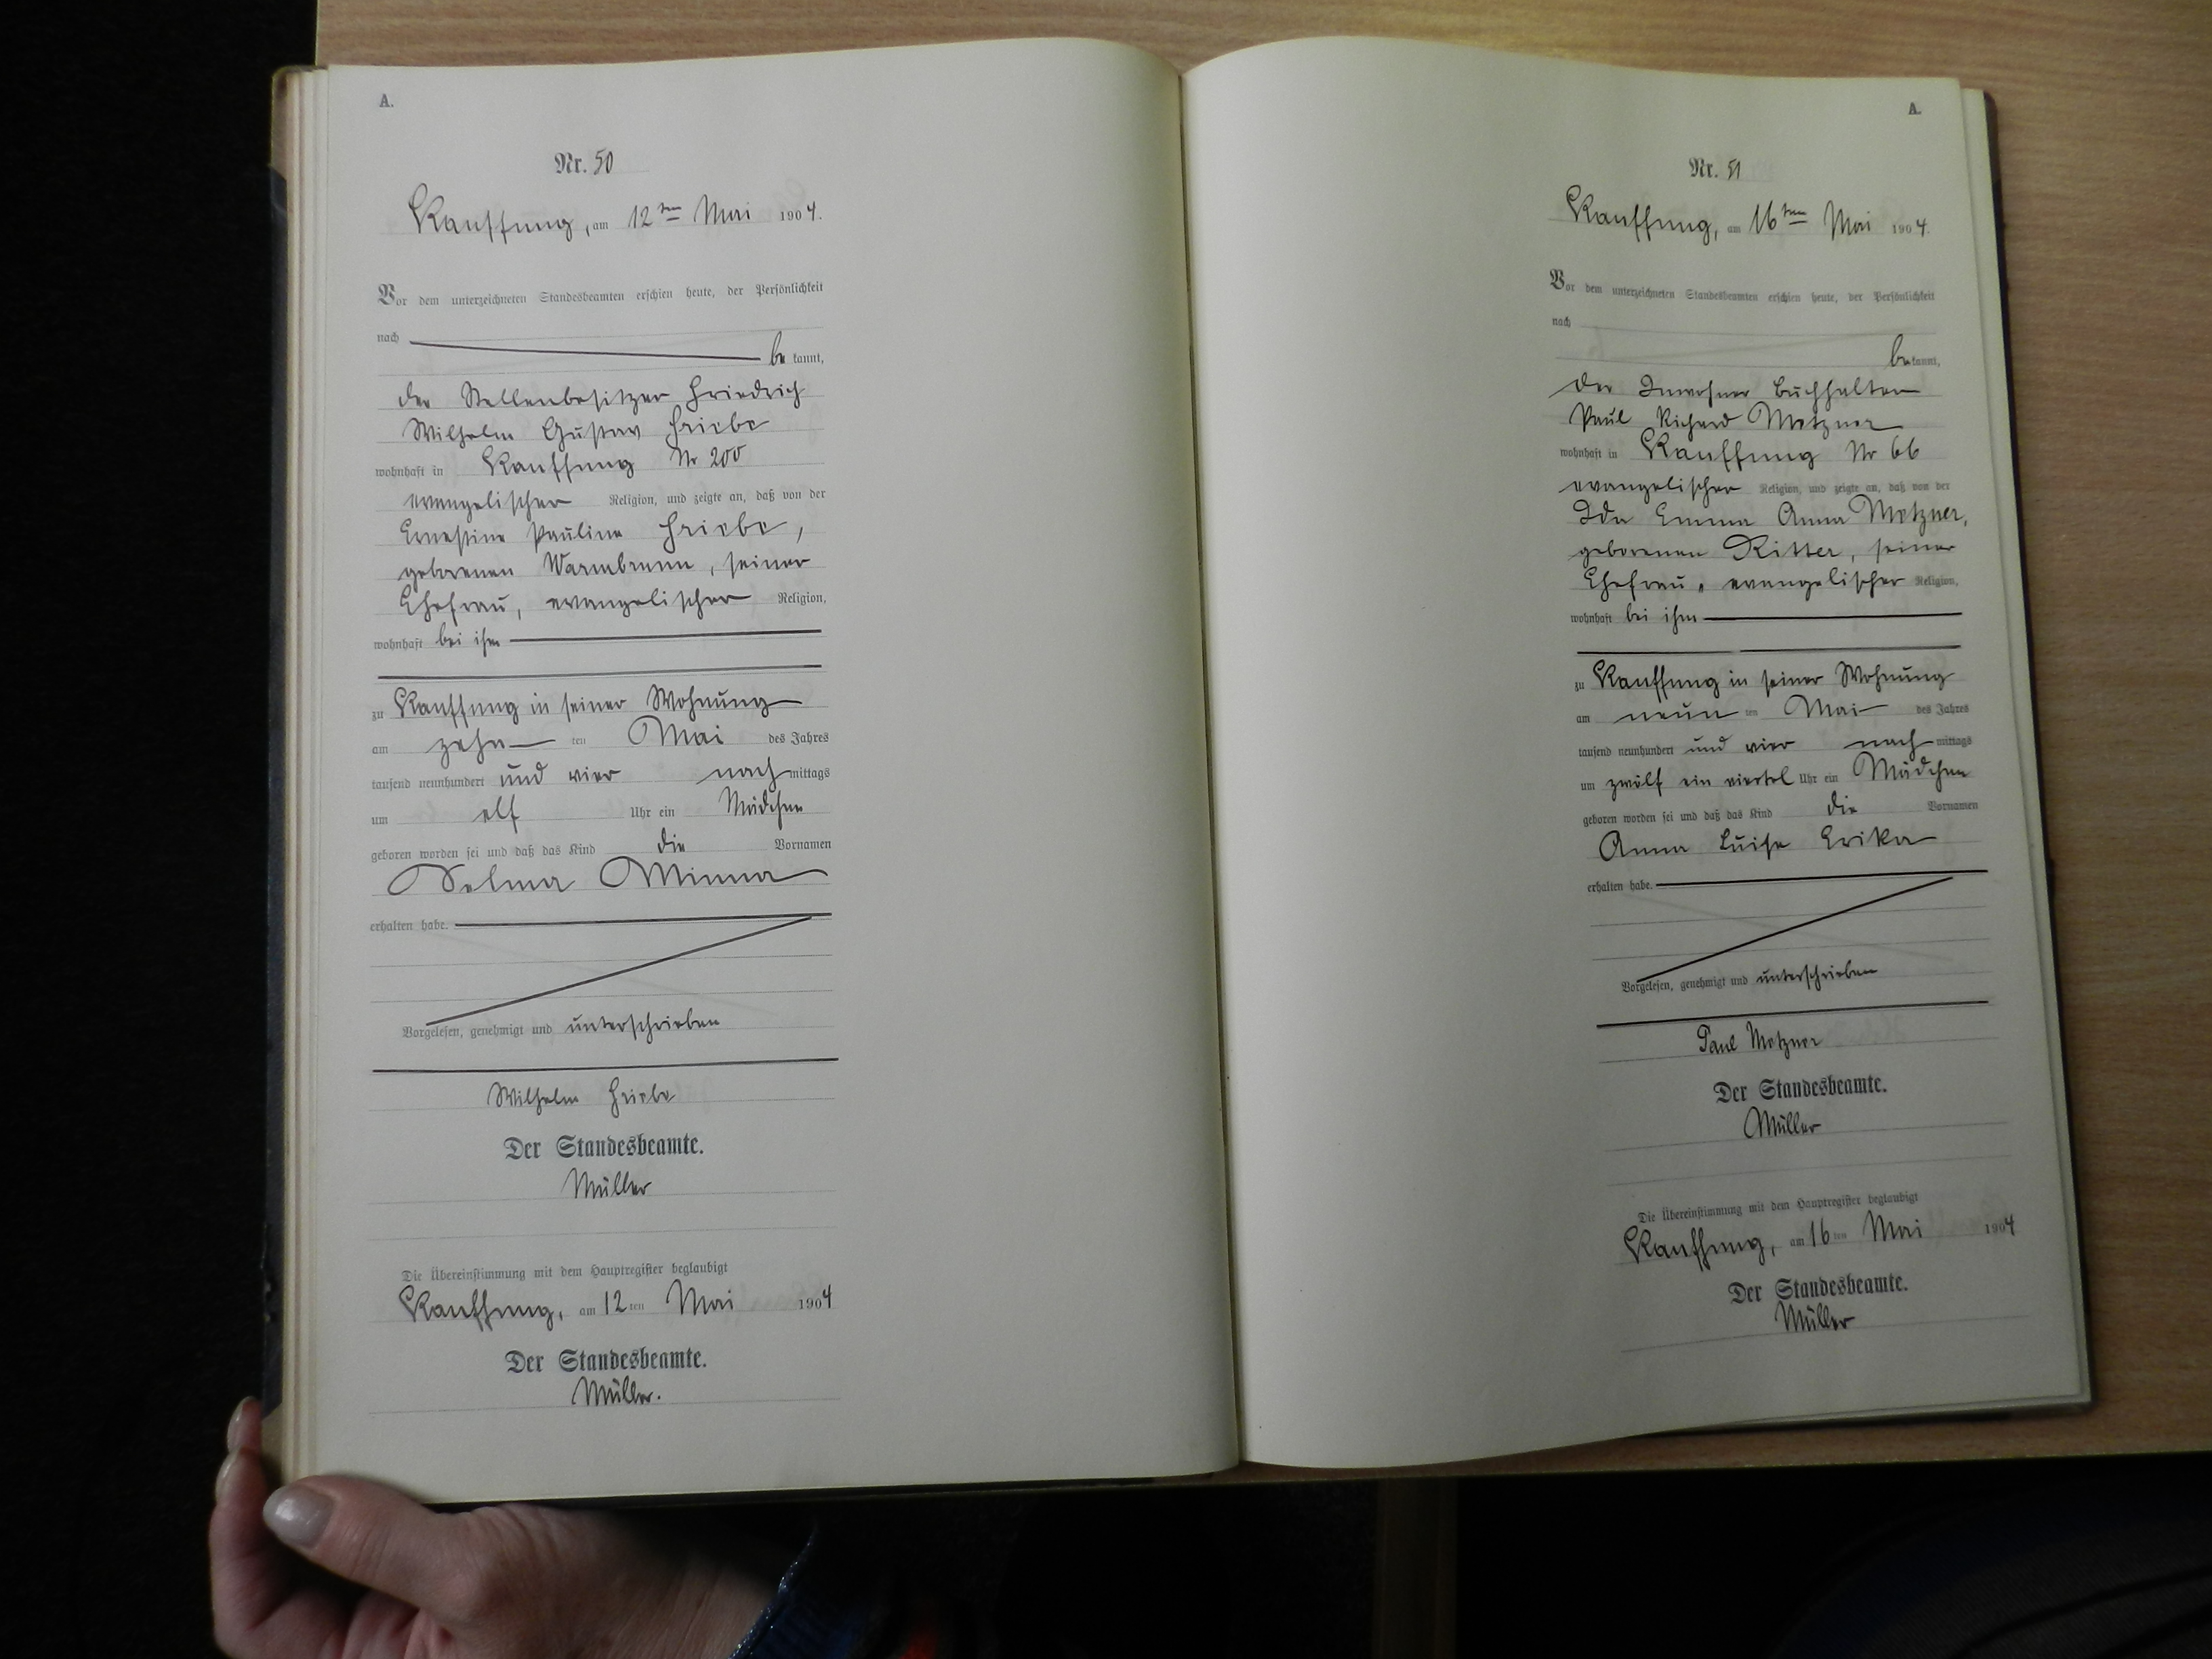 A.
Nr. 50
Kauffung, am 12ten Mai 1904.
Vor dem unterzeichneten Standesbeamten erschien heute, der Persönlichkeit
nach
be kannt,
der Stellenbesitzer Friedrich
Wilhelm Gustav Friebe
wohnhaft in Kauffung Nr 200
evangelischer Religion, und zeigte an, daß von der
Ernestine Pauline Friebe,
geborenen Warmbrunn, seiner
Ehefrau, evangelischer Religion,
wohnhaft bei ihm
zu Kauffung in seiner Wohnung
am zehn ten Mai des Jahres
tausend neunhundert und vier nach mittags
um elf Uhr ein Mädchen
geboren worden sei und daß das Kind die Vornamen
Selma Minna
erhalten habe.
Vorgelesen, genehmigt und unterschrieben
Wilhelm Friebe
Der Standesbeamte.
Müller
Die Übereinstimmung mit dem Hauptregister beglaubigt
Kauffung, am 12 ten Mai 1904
Der Standesbeamte.
Müller.
A.
Nr. 51
Kauffung, am 16ten Mai 1904.
Vor dem unterzeichneten Standesbeamten erschien heute, der Persönlichkeit
nach
be kannt,
der Inwohner Buchhalter
Paul Richard Metzner
wohnhaft in Kauffung Nr 66
evangelischer Religion, und zeigte an, daß von der
Ida Emma Anna Metzner,
geborenen Ritter, seiner
Ehefrau, evangelischer Religion,
wohnhaft bei ihm
zu Kauffung in seiner Wohnung
am neun ten Mai des Jahres
tausend neunhundert und vier nach mittags
um zwölf ein viertel Uhr ein Mädchen
geboren worden sei und daß das Kind die Vornamen
Anna Luise Erika
erhalten habe.
Vorgelesen, genehmigt und unterschrieben
Paul Metzner
Der Standesbeamte.
Müller
Die Übereinstimmung mit dem Hauptregister beglaubigt
Kauffung, am 16 ten Mai 1904
Der Standesbeamte.
Müller